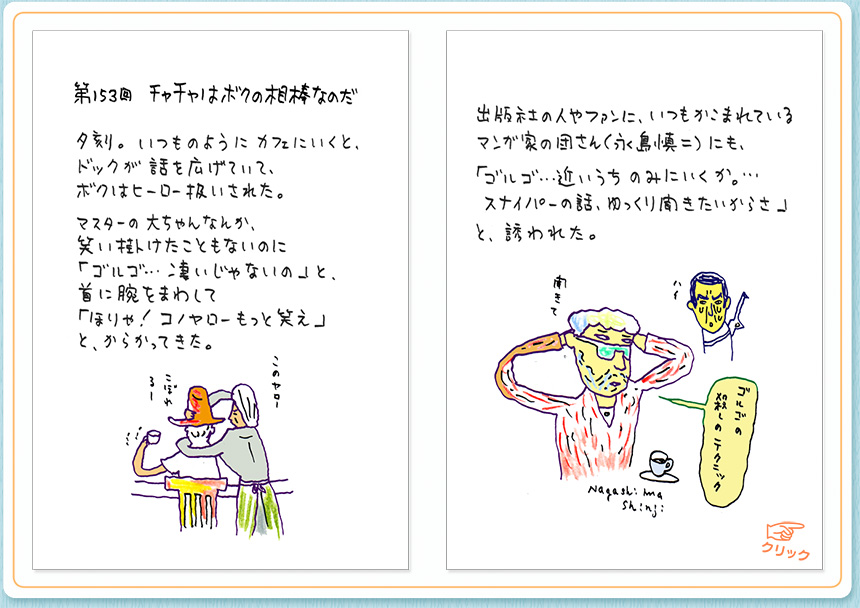 第153回 チャチャはボクの相棒なのだ
夕刻。いつものように カフェにいくと、
ドックが 話を広げていて、
ボクはヒーロー扱いされた。
マスターの 大ちゃんなんか、
笑い掛けたこともないのに
「ゴルゴ…凄いじゃないの」と、
首に腕をまわして
「ほりゃ! コノヤローもっと笑え」
と、からかってきた。
このヤロー
こぼれ
るー
出版社の人やファンに、いつもかこまれている
マンガ家の団さん(永島慎二)にも、
「ゴルゴ…近いうち のみにいくか。…
スナイパーの話、ゆっくり聞きたいからさ」
と、誘われた。
聞きて
ハイ
ゴルゴの
殺しのテクニック
Nagashima
Shinji
クリック